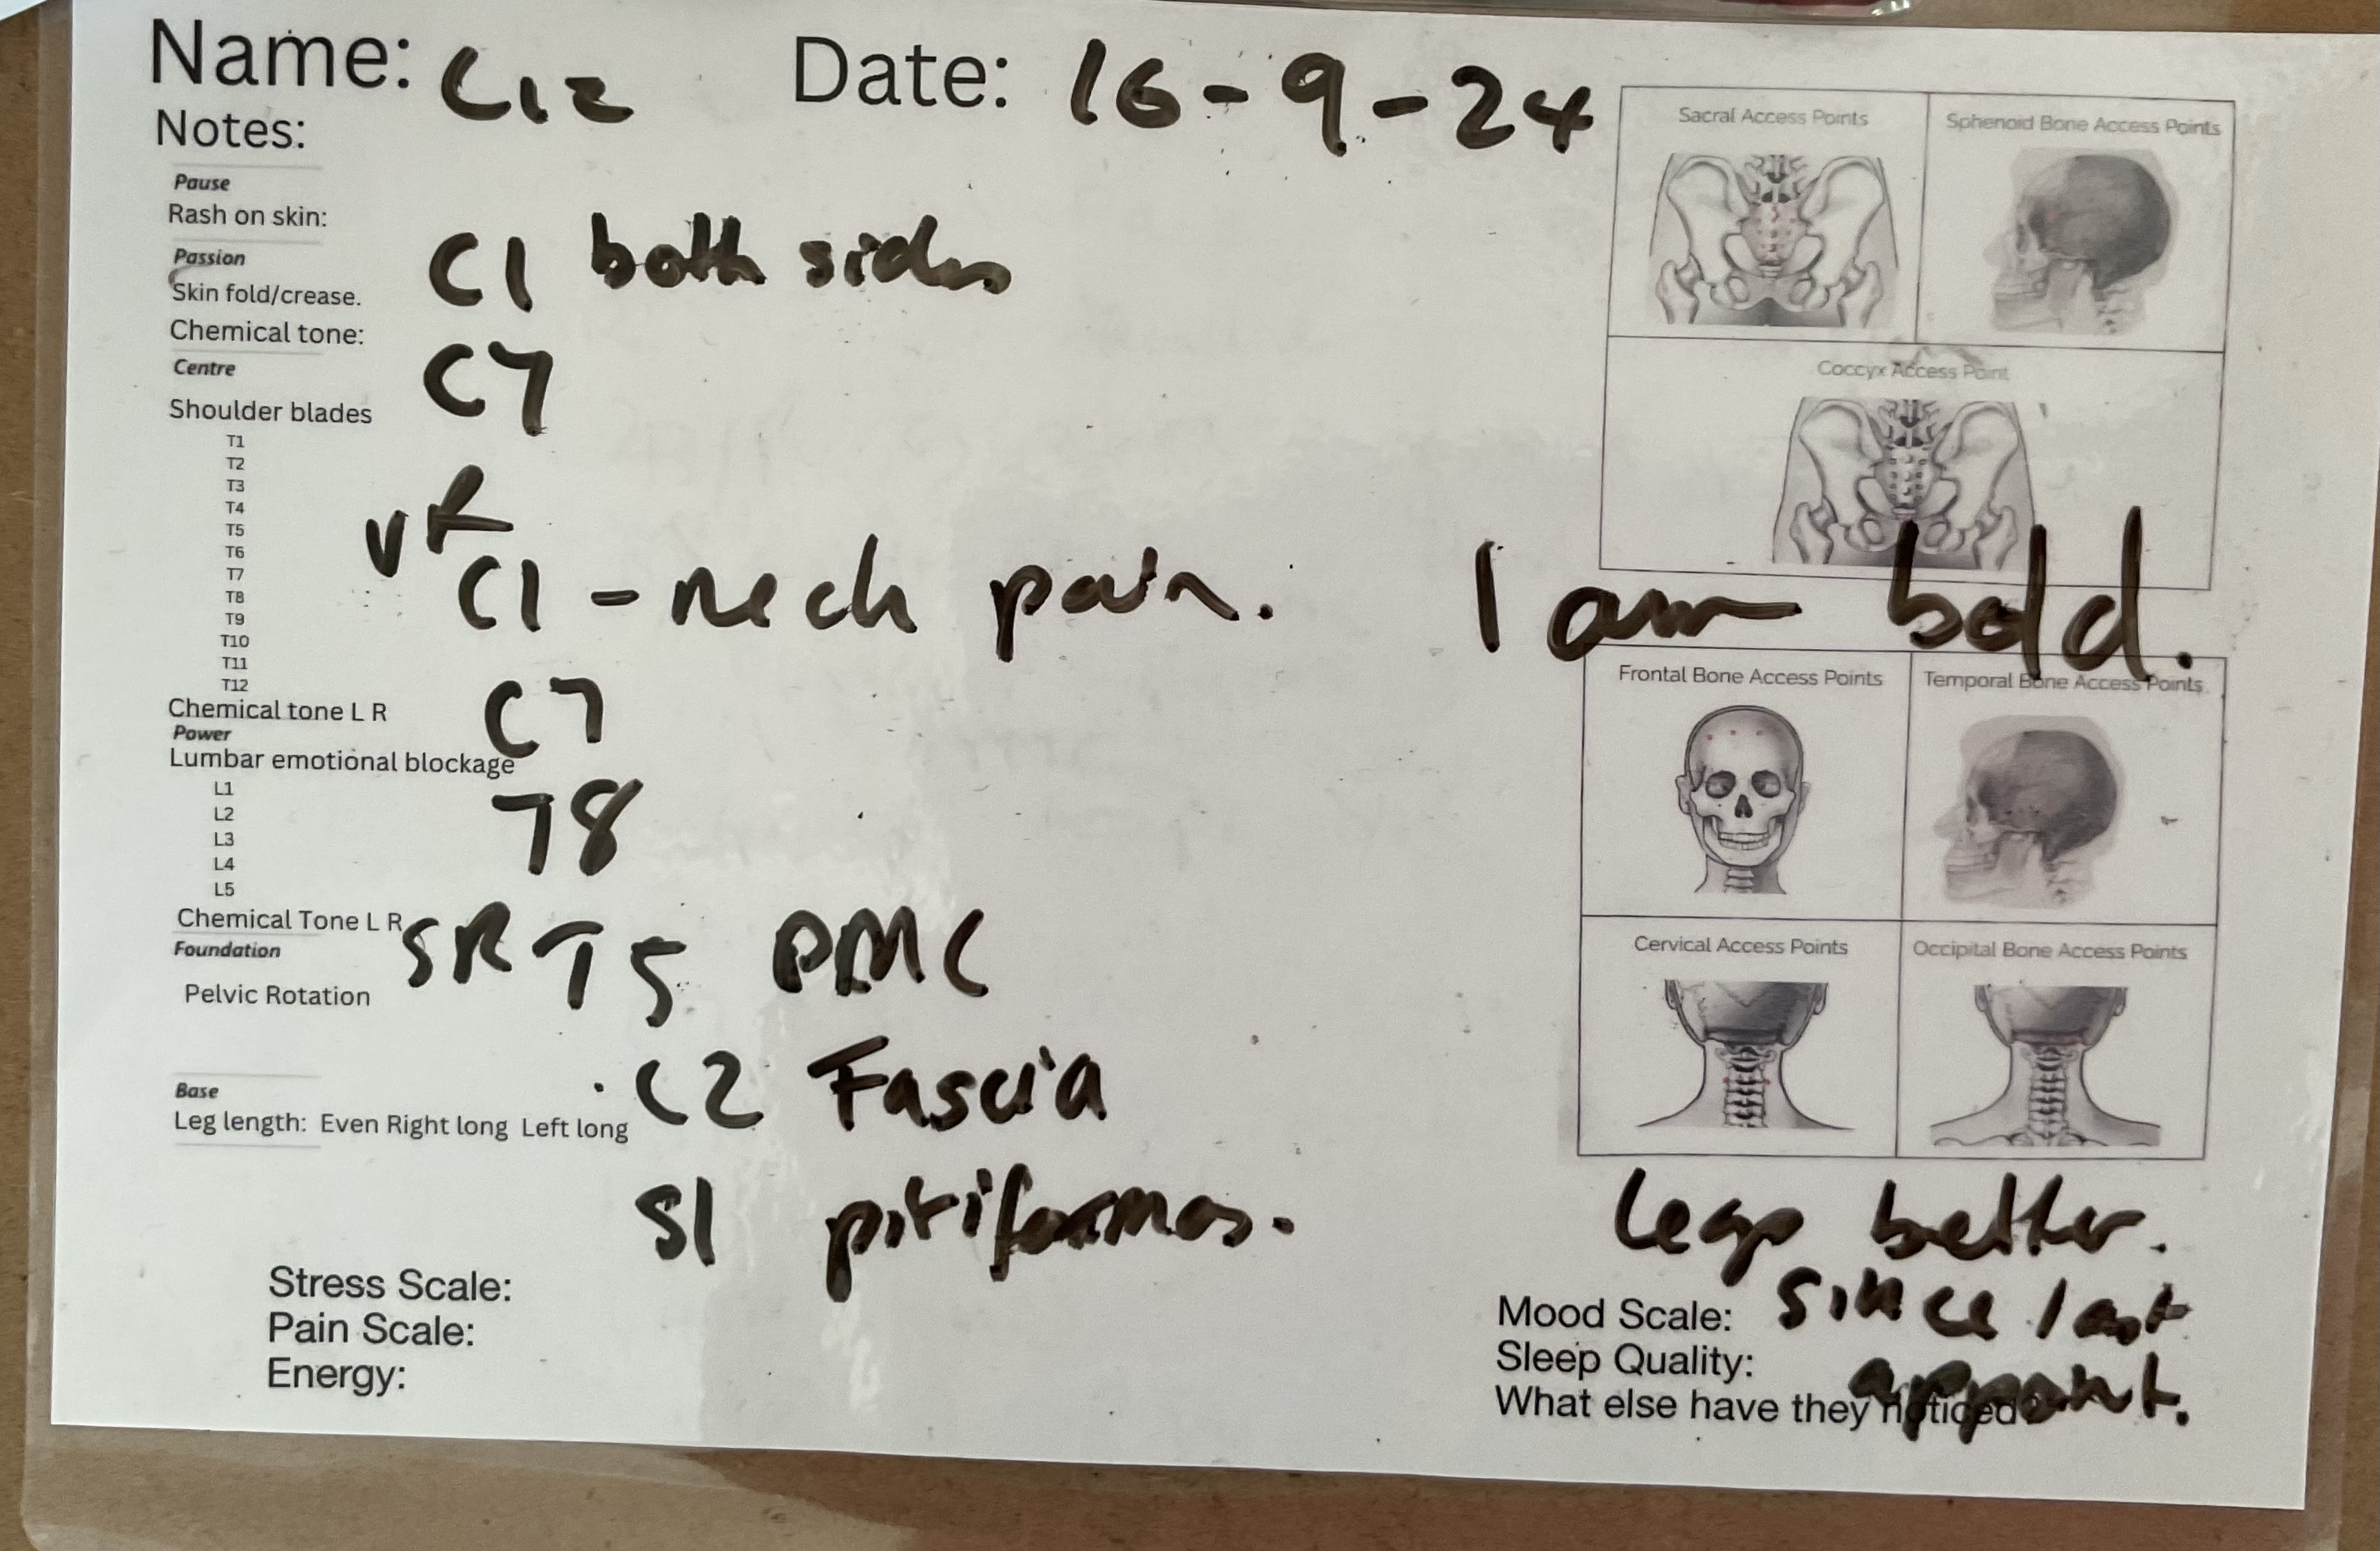 Name: Liz Date: 16-9-24
Notes:
Pause
Rash on skin:
Passion
Skin fold/crease. C1 both sides
Chemical tone:
Centre C7
Shoulder blades
T1
T2
T3
T4
T5
T6
T7
T8
T9
T10
T11
T12
C1 - neck pain. I am bold.
Chemical tone L R C7
Power
Lumbar emotional blockage
L1
L2
L3
L4
L5
T8
Chemical Tone L R SR T5 PMC
Foundation
Pelvic Rotation
Base C2 Fascia
Leg length: Even Right long Left long
S1 piriformas.
Stress Scale:
Pain Scale:
Energy:
Sacral Access Points
Sphenoid Bone Access Points
Coccyx Access Point
Frontal Bone Access Points
Temporal Bone Access Points
Cervical Access Points
Occipital Bone Access Points
legs better.
Mood Scale: since last
Sleep Quality:
What else have they noticed?